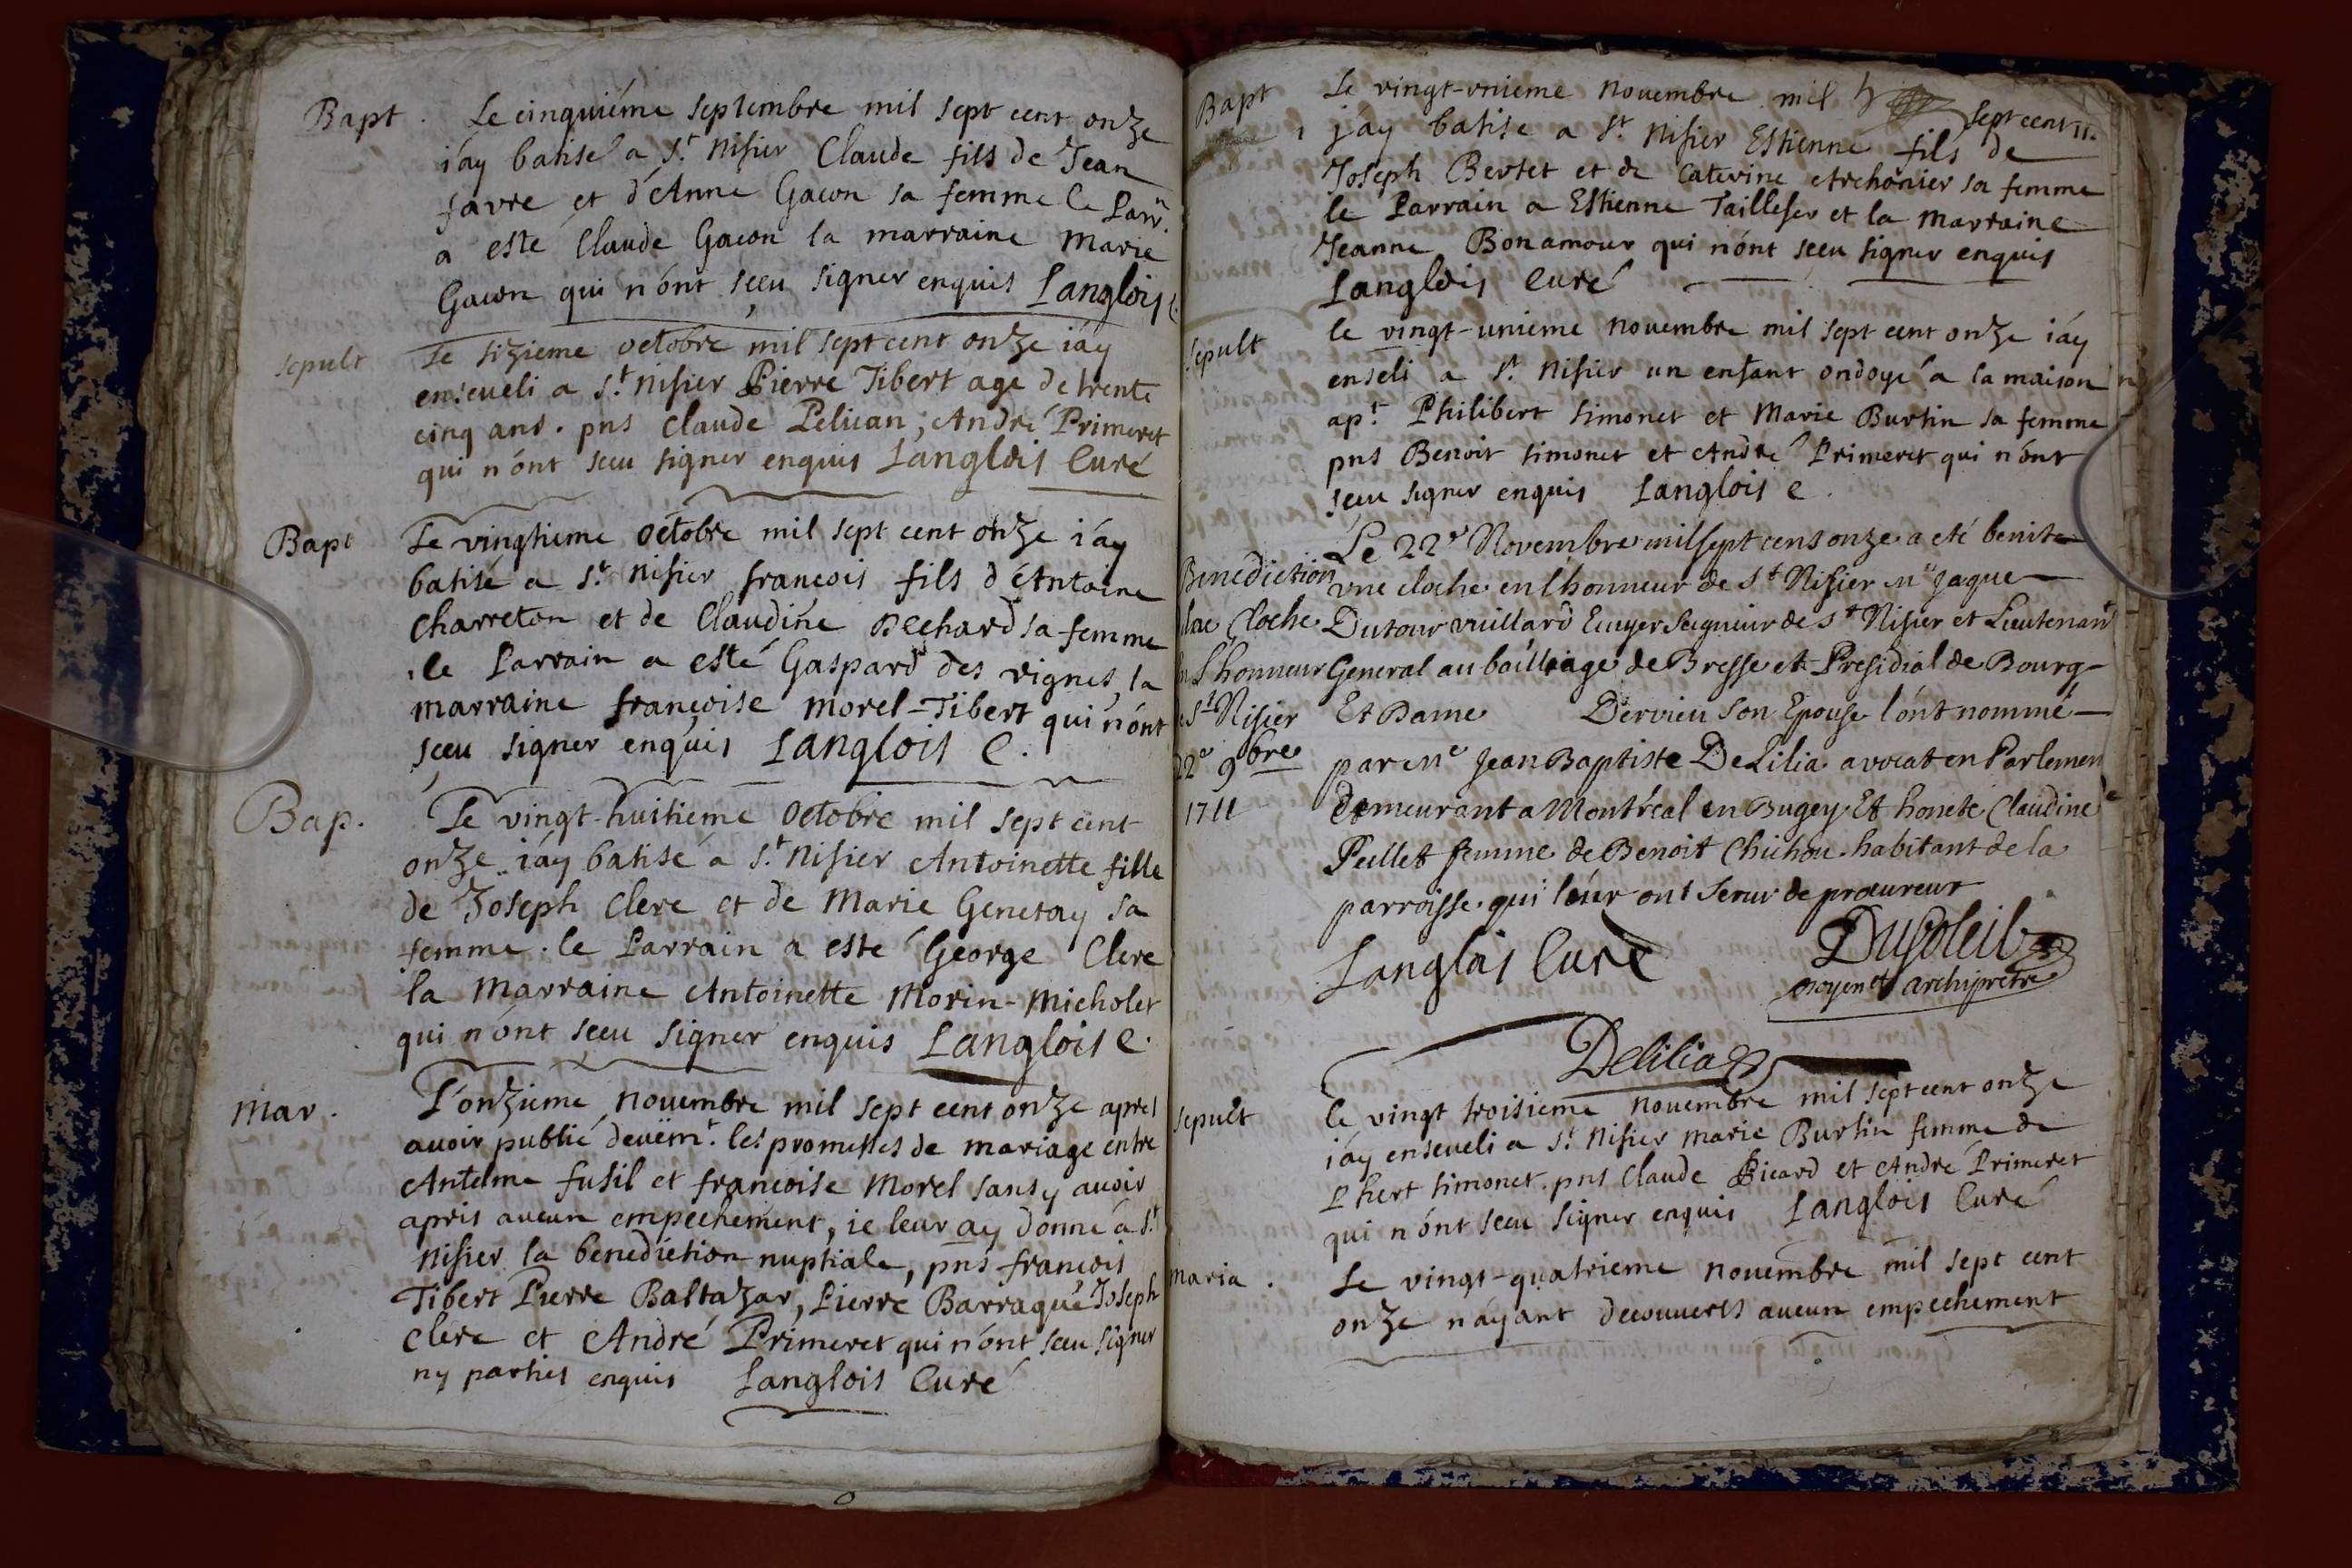 Bapt. Le cinquiéme septembre mil sept cent onze
i'ay batisé a St. Nisier Claude fils de Jean
favre et d'Anne Gacon sa femme le Parr.
a esté Claude Gacon la marraine Marie
Gacon qui n'ont sceu signer enquis Langlois C.
sepult Le sizieme octobre mil sept cent onze i'ay
enseueli a St. Nisier Pierre Tibert age de trente
cinq ans. pns Claude Pelican, André Primeret
qui n'ont sceu signer enquis Langlois Curé
Bapt Le vingtieme octobre mil sept cent onze i'ay
batisé a St. Nisier francois fils d'Antoine
Charreton et de Claudine Bechard sa femme
le Parrain a esté Gaspard des vignes, la
marraine françoise Morel-Tibert qui n'ont
sçeu signer enquis Langlois C.
Bap. Le vingt-huitieme octobre mil sept cent
onze i'ay batisé a St. Nisier Antoinette fille
de Joseph Clerc et de Marie Genetay sa
femme. le Parrain a esté George Clerc
la Marraine Antoinette Morin-Micholet
qui n'ont sceu signer enquis Langlois C.
Mar. L'onzieme nouembre mil sept cent onze apres
auoir publié deuëmt. les promesses de mariage entre
Antelme fusil et francoise Morel sans y auoir
apris aucun empechement, ie leur ay donné a St.
Nisier la benediction nuptiale, pns francois
Tibert Pierre Baltazar, Pierre Barraqué Joseph
Clerc et André Primeret qui n'ont sceu signer
ny parties enquis Langlois Curé
Bapt Le vingt-unieme nouembre mil sept cent 11.
j'ay batisé a St. Nisier Estienne fils de
Joseph Bertet et de Caterine sa femme
le Parrain a Estienne Taillefer et la Marraine
Jeanne Bonamour qui n'ont sceu signer enquis
Langlois Curé
sepult le vingt-unieme nouembre mil sept cent onze i'ay
enseli a St. Nisier un enfant ondoyé a la maison
apt. Philibert Simonet et Marie Burtin sa femme
pns Benoit Simonet et André Primeret qui n'ont
sceu signer enquis Langlois C.
Le 22e Novembre mil sept cens onze a eté benite
Benediction vne cloche en l'honneur de St Nisier Mre Jaque
dune Cloche Dutour vuillard Ecuyer Seigneur de St Nisier et Lieutenant
en L'honneur General au bailliage de Bresse et Presidial de Bourg
de St Nisier Et Dame Dervieu Son Epouse l'ont nommé
22e 9bre par Me Jean Baptiste DeLilia avocat en Parlemen
1711 demeurant a Montréal en Bugey Et honete Claudine
Peillet femme de Benoit Chichou habitant de la
parroisse qui leur ont Serui de procureur
Langlois Curé Dusoleil
Doyen et archiprêtre
Delilia
sepult le vingt troisieme nouembre mil sept cent onze
i'ay enseueli a St. Nisier Marie Burtin femme de
Phert Simonet. pns Claude Picard et André Primeret
qui n'ont sceu signer enquis Langlois Curé
Maria. Le vingt-quatrieme nouembre mil sept cent
onze n'ayant decouuerts aucun empechement